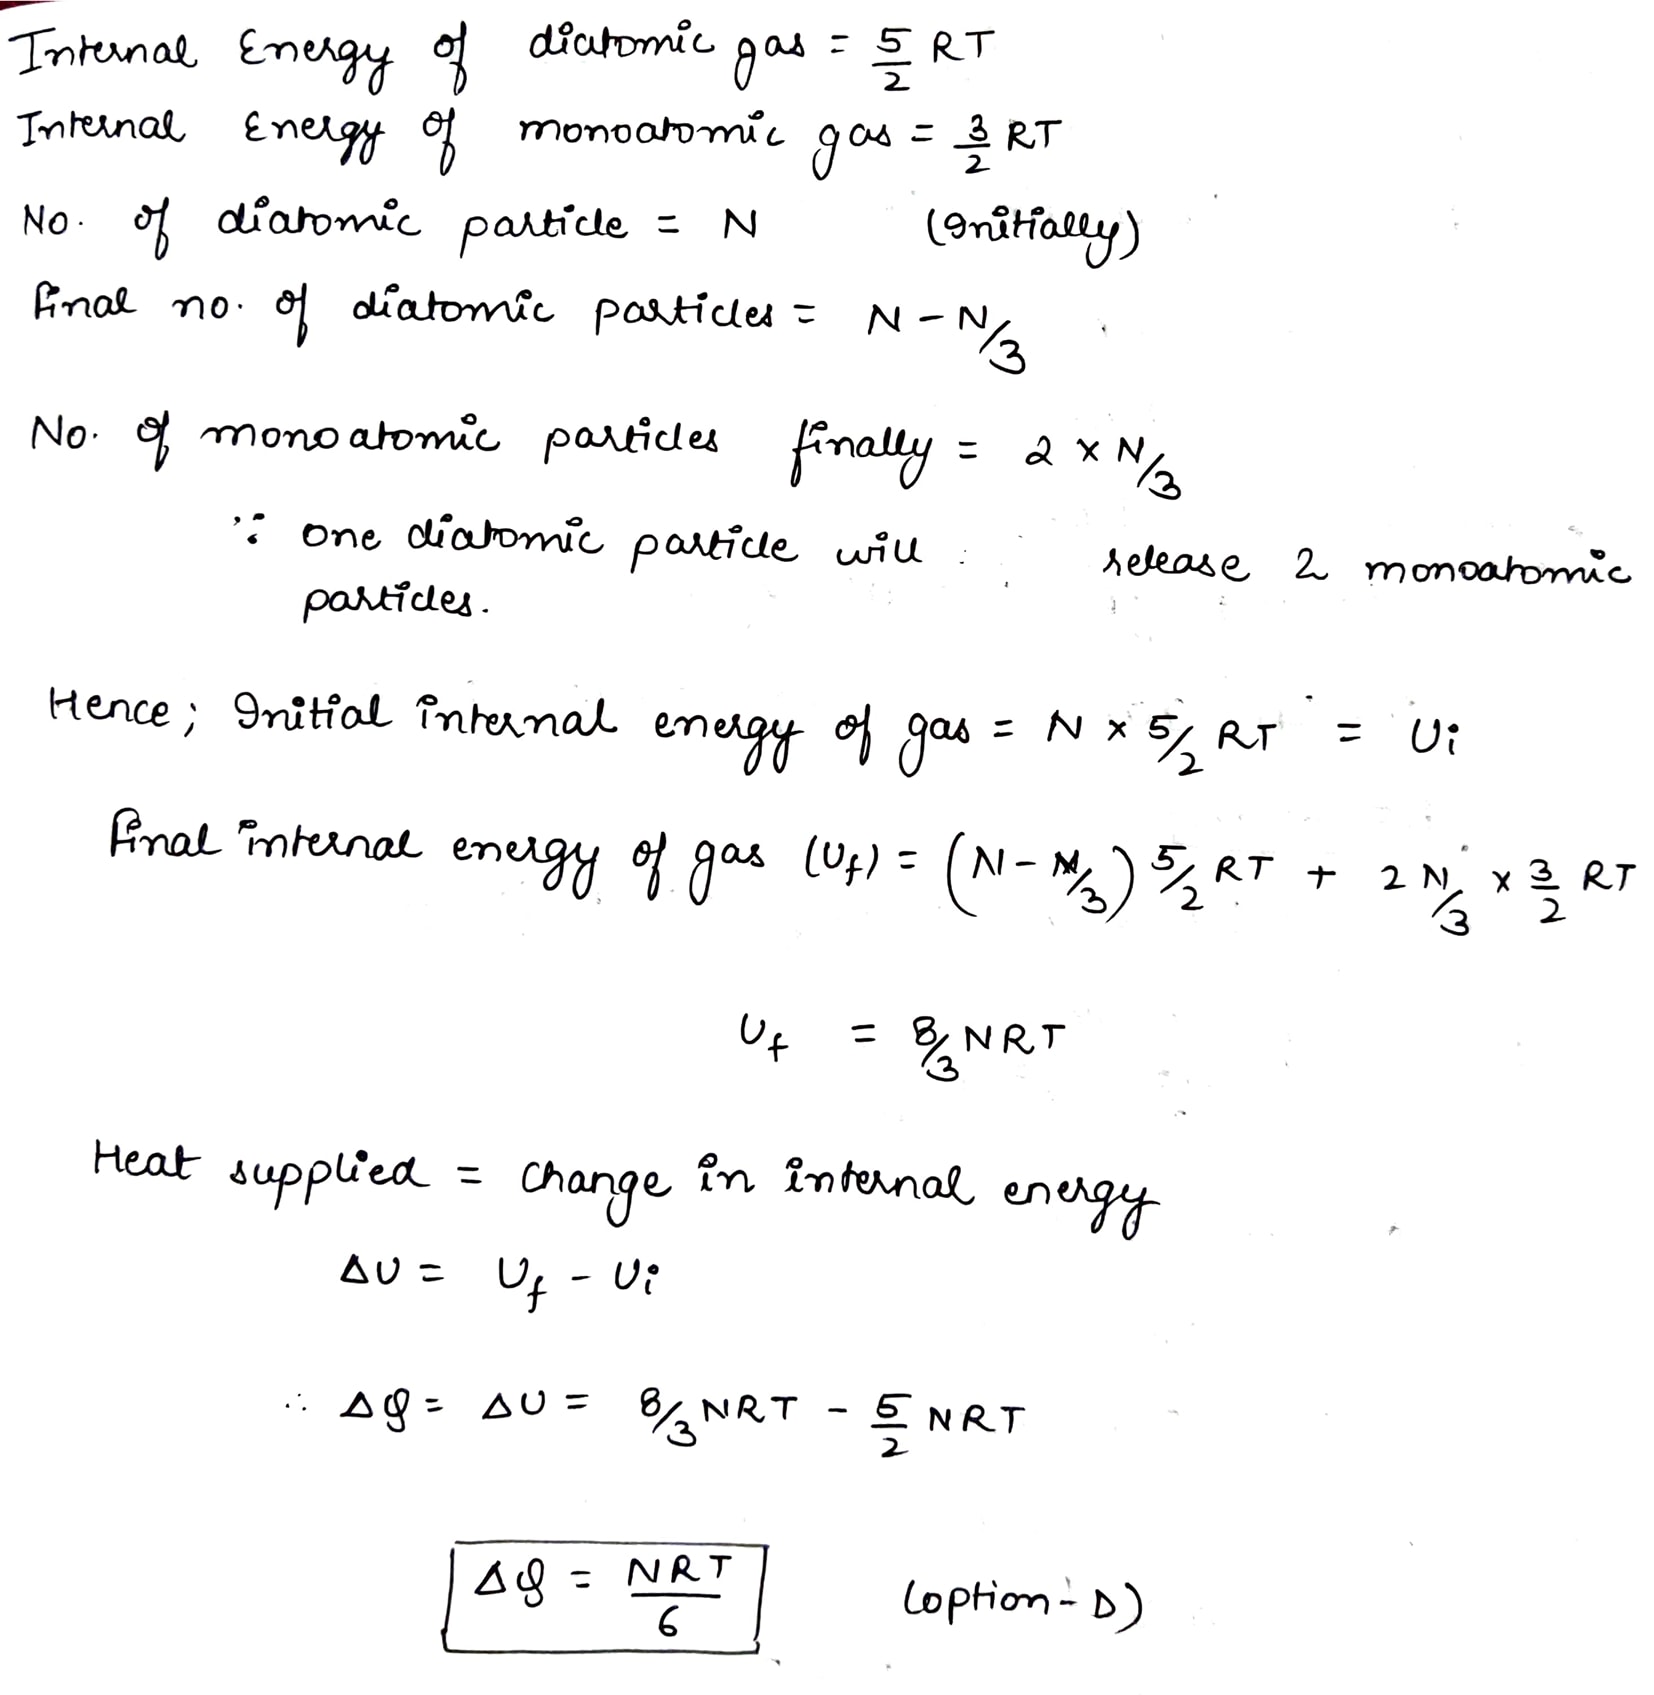 Internal Energy of diatomic gas = 5/2 RT
Internal Energy of monoatomic gas = 3/2 RT
No. of diatomic particle = N (Initially)
final no. of diatomic particles = N - N/3
No. of monoatomic particles finally = 2 × N/3
∵ one diatomic particle will release 2 monoatomic
particles.
Hence; Initial internal energy of gas = N × 5/2 RT = Ui
final internal energy of gas (Uf) = (N - N/3) 5/2 RT + 2N/3 × 3/2 RT
Uf = 8/3 NRT
Heat supplied = change in internal energy
ΔU = Uf - Ui
∴ ΔQ = ΔU = 8/3 NRT - 5/2 NRT
ΔQ = NRT/6 (option - D)